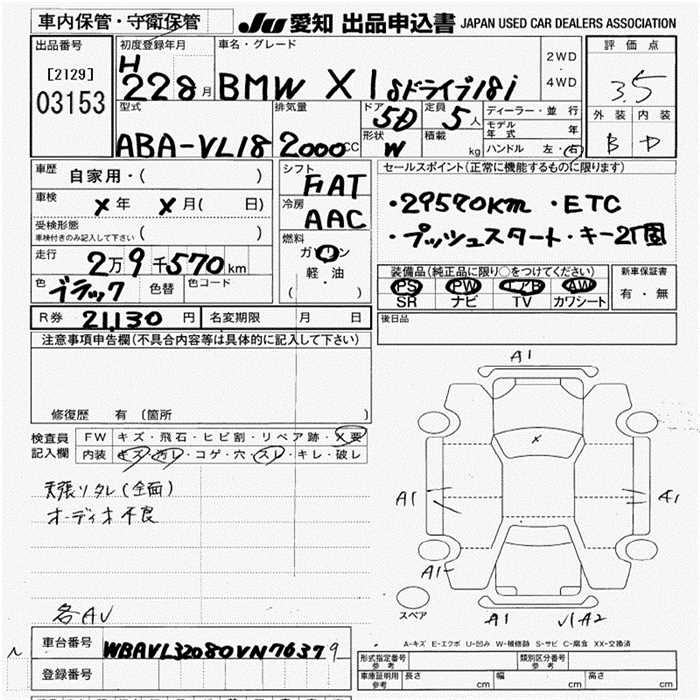 車内保管・守衛保管
JU 愛知 出品申込書 JAPAN USED CAR DEALERS ASSOCIATION
出品番号
[2129]
03153
初度登録年月
H
22 8 月
車名・グレード
BMW X1 sドライブ18i
2WD
4WD
評価点
3.5
外装 内装
B D
型式
ABA-VL18
排気量
2000 CC
ドア
5D
定員
5 人
形状
W
積載
kg
ディーラー・並行
モデル年式 年
ハンドル 左・右
車歴
自家用・( )
車検
X 年 X 月( 日)
受検形態
車検付きのみ記入して下さい ( )
走行
2万9千570km
色
ブラック
色替
色コード
シフト
FIAT
冷房
AAC
燃料
ガソリン
軽油
( )
セールスポイント(正常に機能するものに限ります)
・29570km ・ETC
・プッシュスタート・キー2個
装備品(純正品に限り○をつけてください)
PS PW エアB AW
SR ナビ TV カワシート
新車保証書
有・無
R券 21,130 円
名変期限 月 日
後日品
注意事項申告欄(不具合内容等は具体的に記入して下さい)
修復歴 有 (箇所 )
検査員記入欄
FW キズ・飛石・ヒビ割・リペア跡・X要
内装 キズ・汚レ・コゲ・穴・スレ・キレ・破レ
天張りタレ(全面)
オーディオ不良
各AV
A1
x
A1
A1
A1
スペア
A1
A2
A-キズ E-エクボ U-凹み W-補修跡 S-サビ C-腐食 XX-交換済
車台番号
WBAVL32080VN76379
登録番号
形式指定番号
参考
類別区分番号
参考
車庫証明用
参考
長さ cm
幅 cm
高さ cm